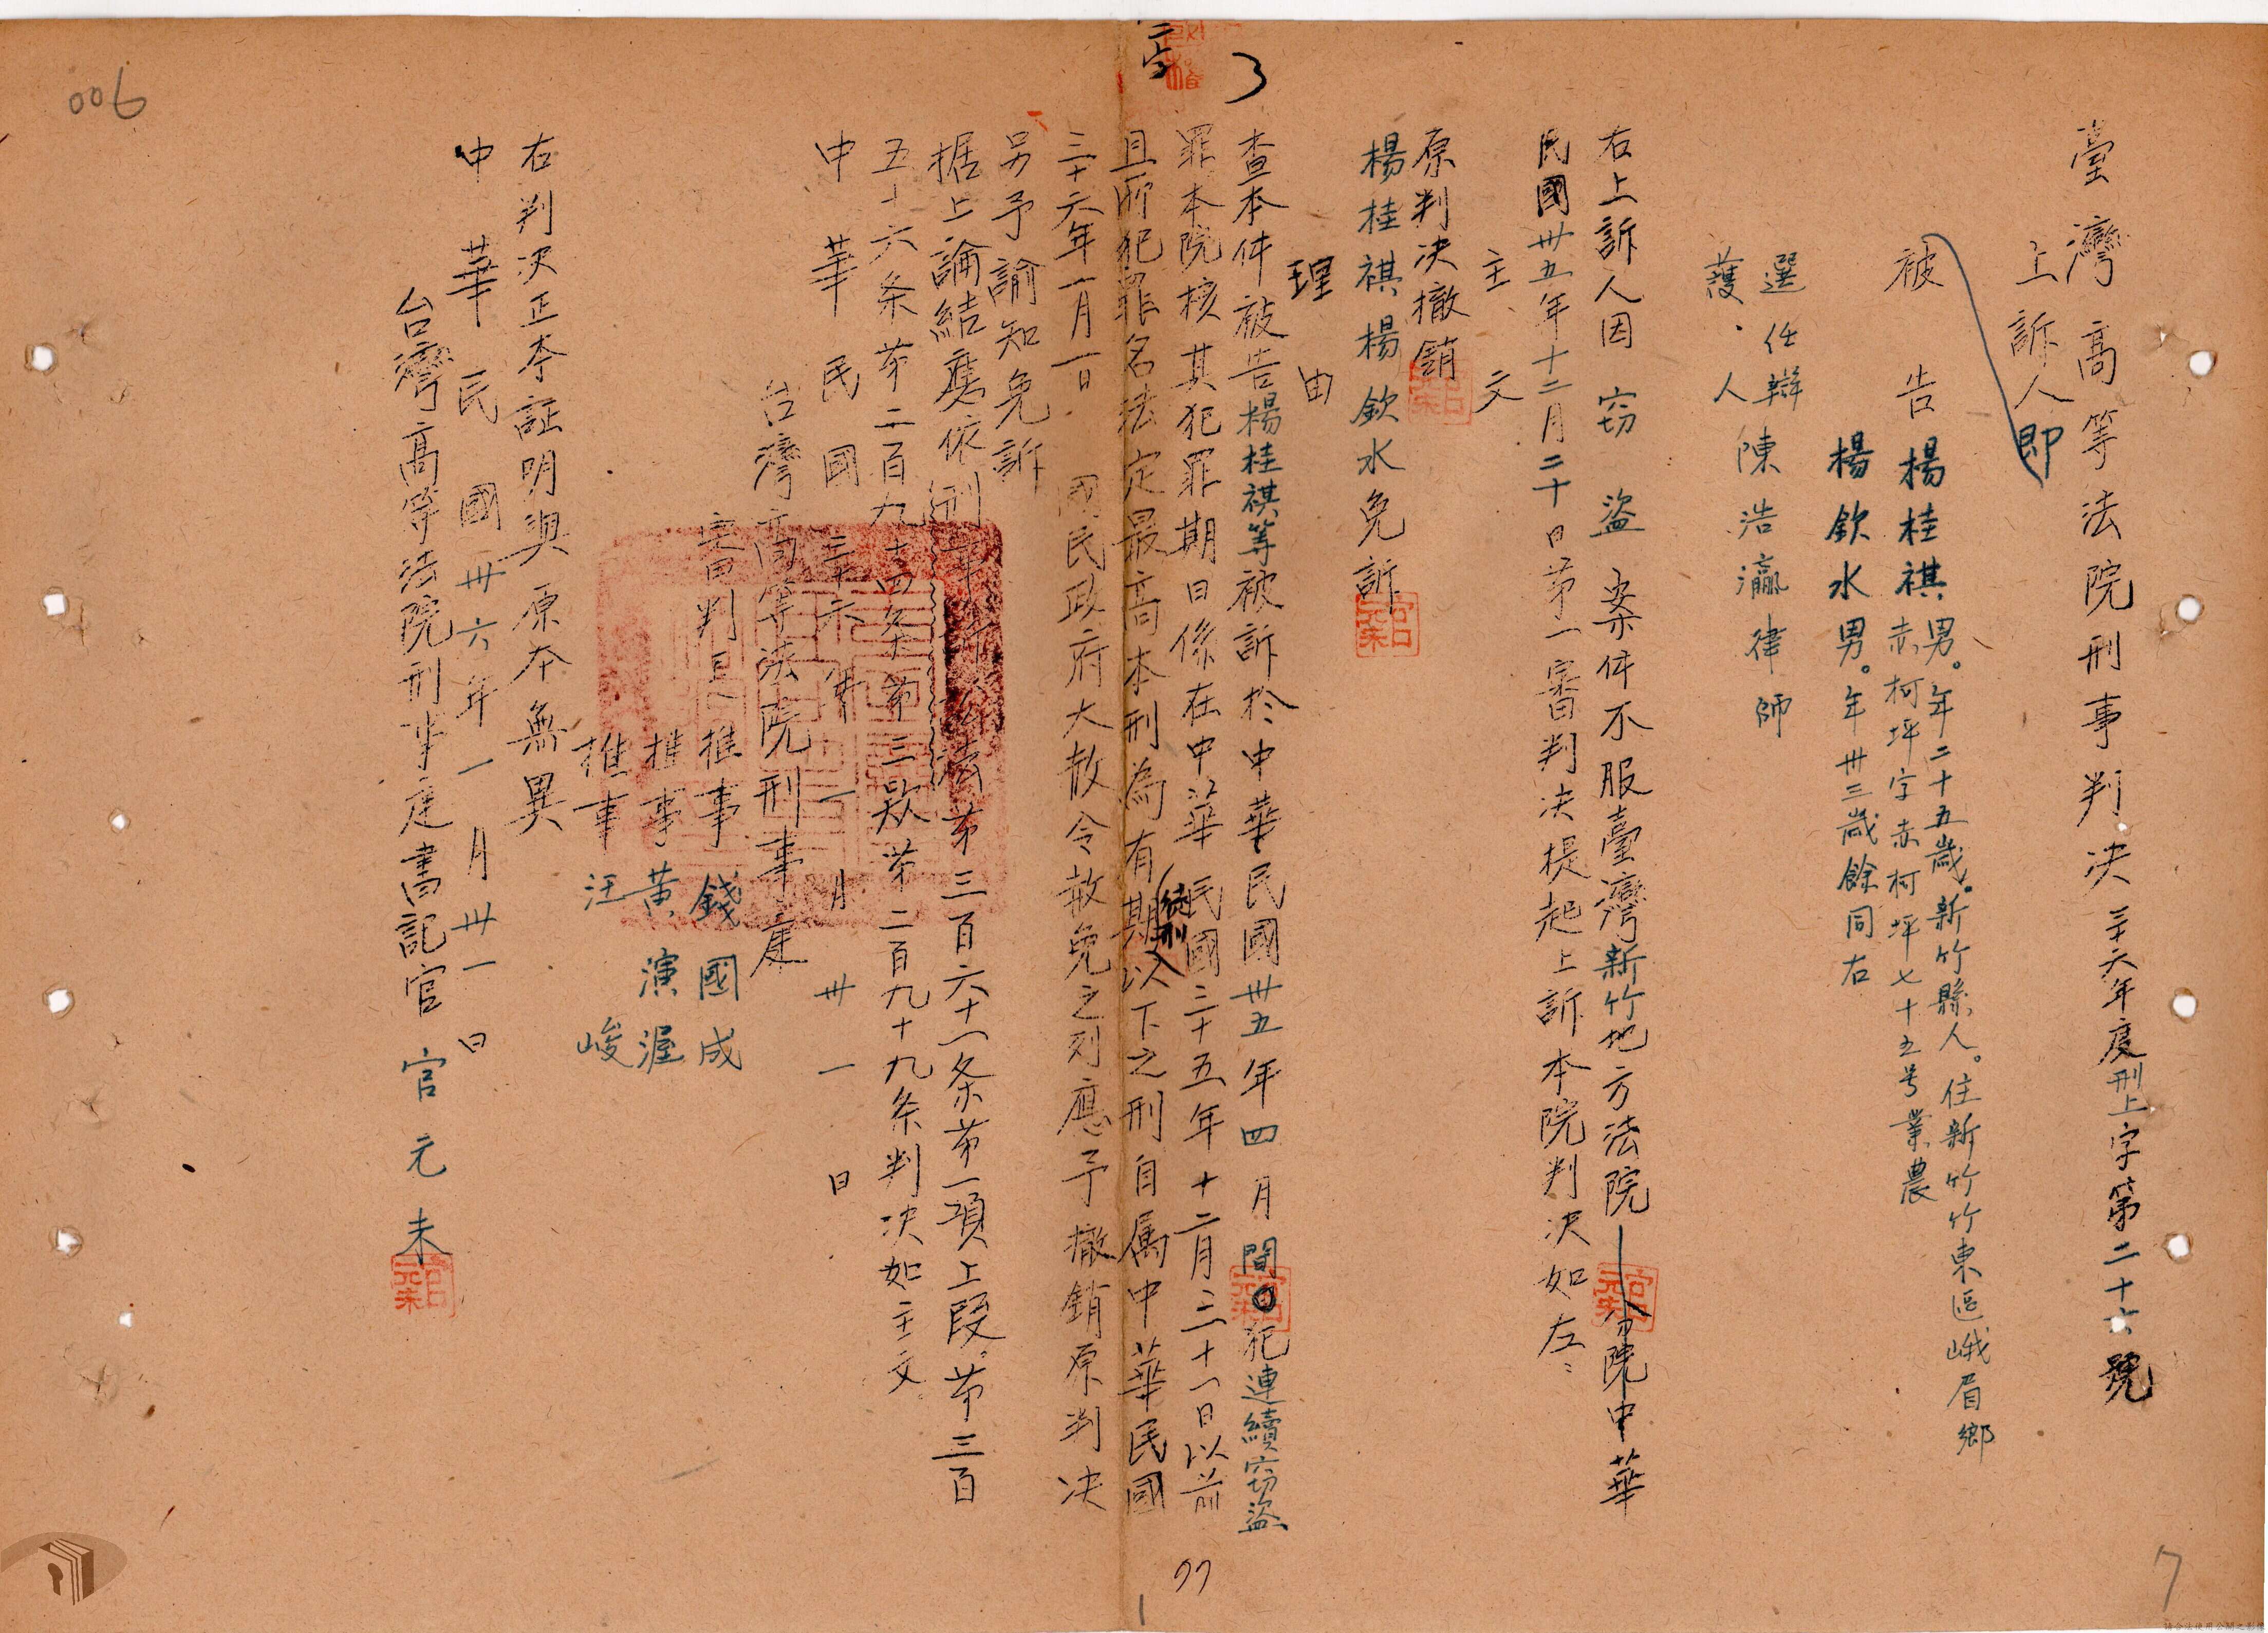 臺灣高等法院刑事判決三十六年度刑上字第二十六號
上訴人即
被告楊桂祺男。年二十五歲。新竹縣人。住新竹竹東區峨眉鄉
赤柯坪字赤柯坪七十五号業農
楊欽水男。年卅三歲餘同右
選任辯
護人陳浩瀛律師
右上訴人因窃盜案件不服臺灣新竹地方法院分院中華
民國卅五年十二月二十日第一審判決提起上訴本院判決如左:
主文
原判決撤銷
楊桂祺楊欽水免訴
理由
查本件被告楊桂祺等被訴於中華民國卅五年四月間犯連續窃盜
罪本院核其犯罪期日係在中華民國三十五年十二月三十一日以前
且所犯罪名法定最高本刑為有期徒刑以下之刑自属中華民國
三十六年一月一日國民政府大赦令赦免之列應予撤銷原判決
另予諭知免訴
据上論結應依刑事訴訟法第三百六十一条第一項上段第三百
五十六条第二百九十四条第三款第二百九十九条判決如主文
中華民國三十六年一月卅一日
台灣高等法院刑事庭
審判長推事錢國成
推事黃演渥
推事汪峻
右判決正本証明與原本無異
中華民國卅六年一月卅一日
台灣高等法院刑事庭書記官官元未
官元未
006
3
77
1
7